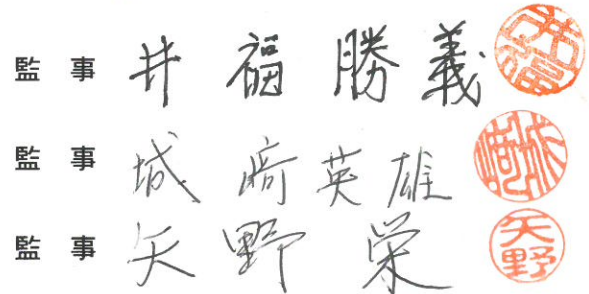 監事 井福勝義 井福
監事 城﨑英雄 城﨑
監事 矢野栄 矢野